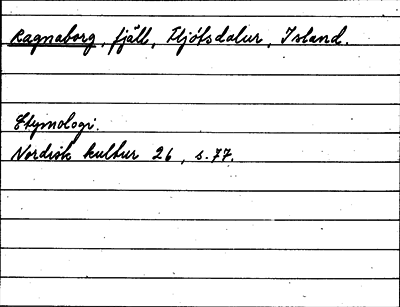 Ragnaborg, fjäll, Fljótsdalur, Island.
Etymologi.
Nordisk kultur 26, s. 77.